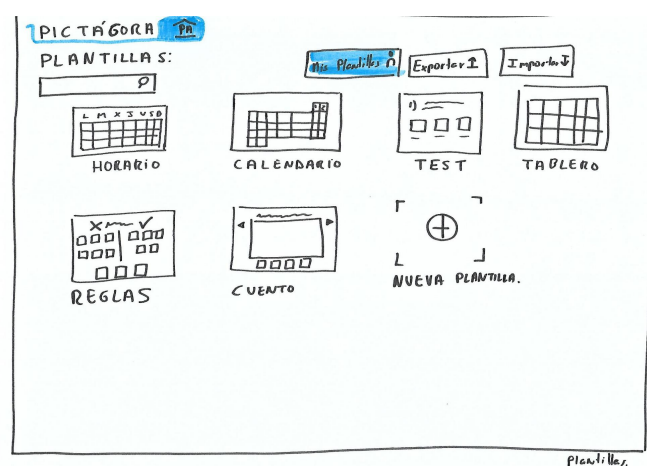 PICTÁGORA PA
PLANTILLAS:
Mis Plantillas Exportar Importar
L M X J V S D
1 2
1)
HORARIO CALENDARIO TEST TABLERO
REGLAS CUENTO NUEVA PLANTILLA.
Plantillas.